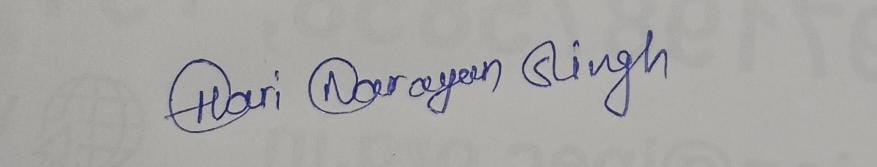 Hari Narayan Singh